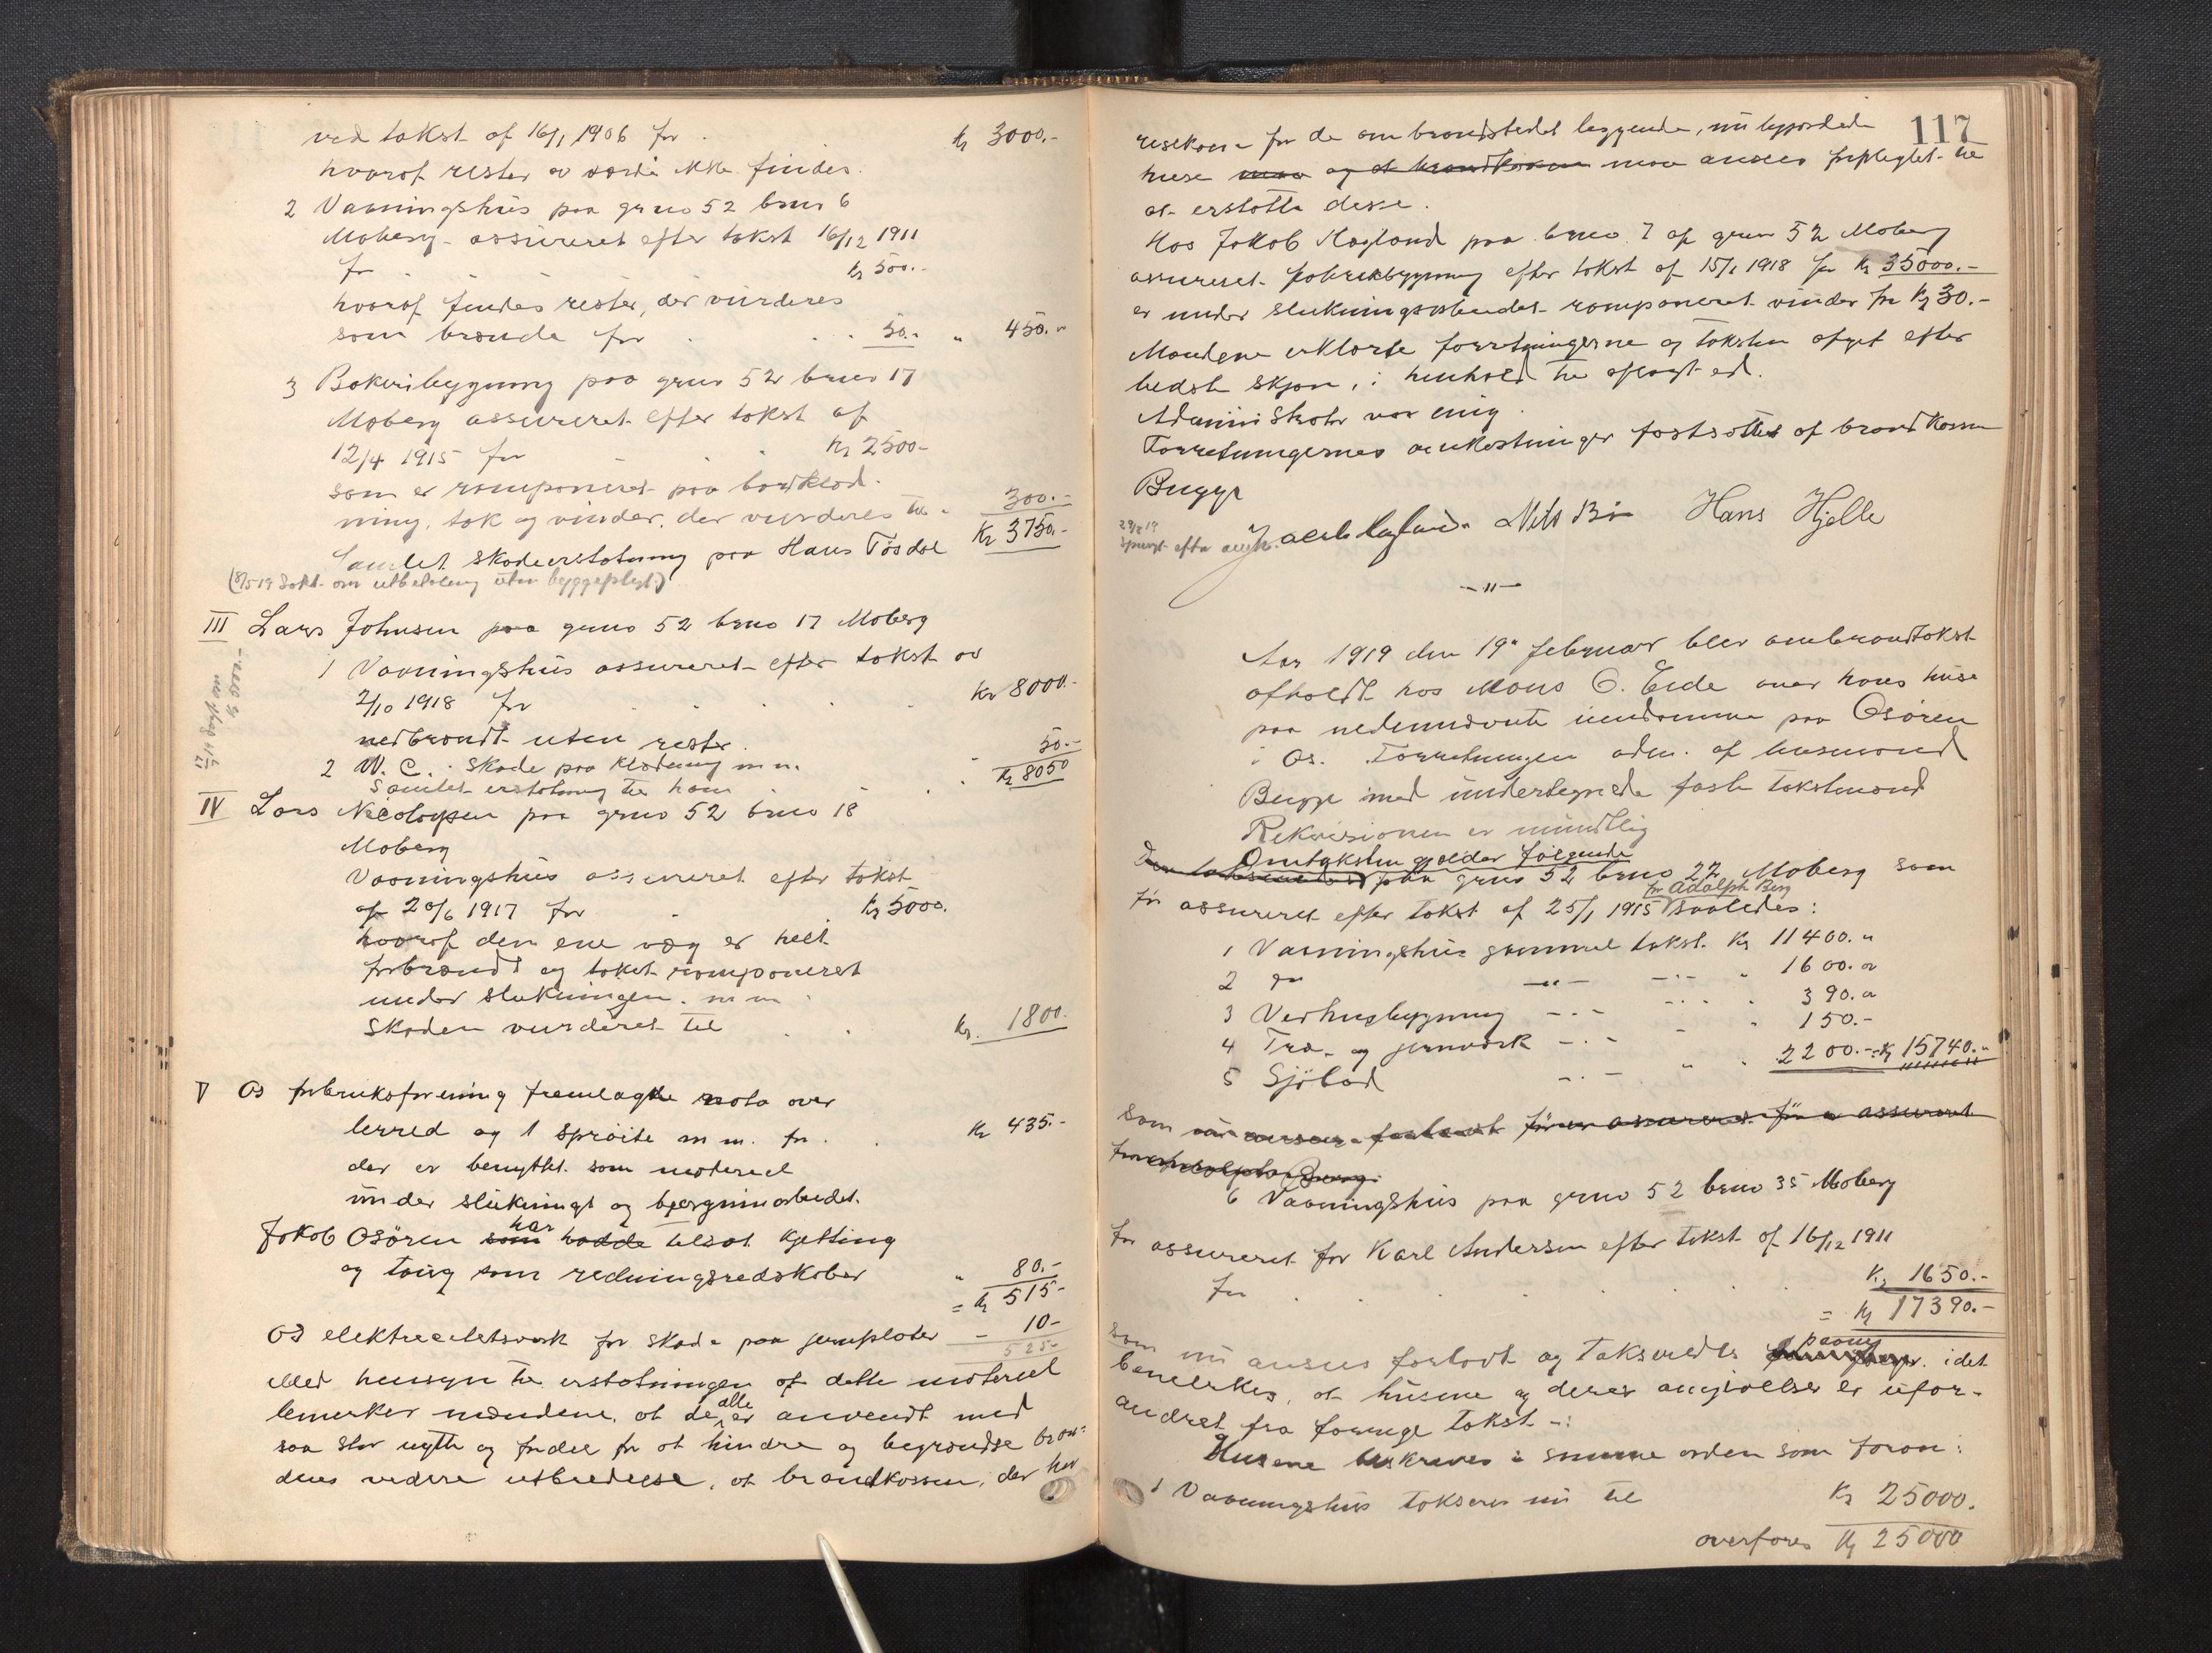 ved takst af 16/1 1906 for . kr 3000.-
hvoraf rester av værdi ikke findes.
2 Vaaningshus paa gruo 52 bruo 6
Moberg - assureret efter takst 16/12 1911
for . . kr 500.-
hvoraf findes rester, der vurderes
som brænde for . . . 50.- " 450. "
3 Bakeribygning paa gruo 52 bruo 17
Moberg assureret efter takst af
12/4 1915 for - . . Kr 2500-
som er ramponeret paa bordklæd-
ning, tak og vinder, der vurderes til - 300.-
Samlet skadeerstatning paa Hans Tøsdal Kr 3750.-
(8/5 19 Søkt om utbetaling uten byggepligt)
III Lars Johnsen paa gruo 52 bruo 17 Moberg
1 Vaaningshus assureret efter takst av
2/10 1918 for . . . . . Kr 8000.-
nedbrændt uten rester.
2 W. C. - skade paa klædning m m. - 50.-
Samlet erstatning til ham . . Kr 8050
IV Lars Nicolaysen paa gruo 52 bruo 18
Moberg
Vaaningshus assureret efter takst
af 20/6 1917 for . . Kr 5000.
hvoraf den ene væg er helt
forbrændt og taket ramponeret
under slukningen. m m .
Skaden vurderet til . . Kr. 1800.
V Os forbruksforening fremlagde nota over
lerred og 1 sprøite m m. for . . Kr 435.-
der er benyttet som materiel
under sluknings og bjergninarbeidet.
har
Jakob Osøren som hadde tilsat kjetting
og taug som redningsredskaber " 80.-
= Kr 515-
Os elektricitetsverk for skade paa jernplater - 10-
525-
Med hensyn til erstatningen af dette materiel
alle
bemerker mændene, at de er anvendt med
saa stor nytte og fordel for at hindre og begrændse bran-
dens videre utbredelse, at brandkassen, der har
117
resikoen for de om brandstedet liggende, nu beskadede
huse maa og at brandkassen maa ansees forpligtet til
at erstatte disse.
Hos Jakob Hagland paa bruo 7 af gruo 52 Moberg
assureret fabrikbygning efter takst af 15/1 1918 for Kr 35000.-
er under slukningsarbeidet ramponeret vinder for Kr 30.-
Mændene erklærte forretningerne og taksten afgit efter
bedste skjøn, i henhold til aflagt ed.
Administrator var enig.
Forretningernes omkostninger fastsættes af brandkassen
Bugge
Jacob Hagland. Nils Bø Hans Hjelle
29/8 19
spurgt efter omk.
- " -
Aar 1919 den 19. februar blev ombrandtakst
afholdt hos Mons O. Eide over hans huse
paa nedennævnte eiendomme paa Osøren
i Os. Forretningen adm. af lensmand
Bugge med undertegnede faste takstmænd
Rekvisionen er mundtlig
Omtaksten gjælder følgende
paa gruo 52 bruo 27 Moberg som
for Adolph Berg
før assureret efter takst af 25/1 1915 saaledes:
1 Vaaningshus gammel takst. Kr 11400. "
2 do - " - - . - " 1600. "
3 Vedhusbygning - . - - . . " 390. "
4 Træ- og jernverk - . - - " 150.-
5 Sjøbod - . - " " 2200.- = Kr 15740.-
Som
6 Vaaningshus paa gruo 52 bruo 35 Moberg
før assureret for Karl Andersen efter takst af 16/12 1911
for . . . . . . Kr 1650.-
= Kr 17390.-
paany
som nu ansees forlavt og taksredes idet
bemerkes, at husene og deres angivelser er ufor-
andret fra forrige takst -:
Husene beskrives i samme orden som foran:
1 Vaaningshus takseres nu til Kr 25000.
overføres Kr 25000